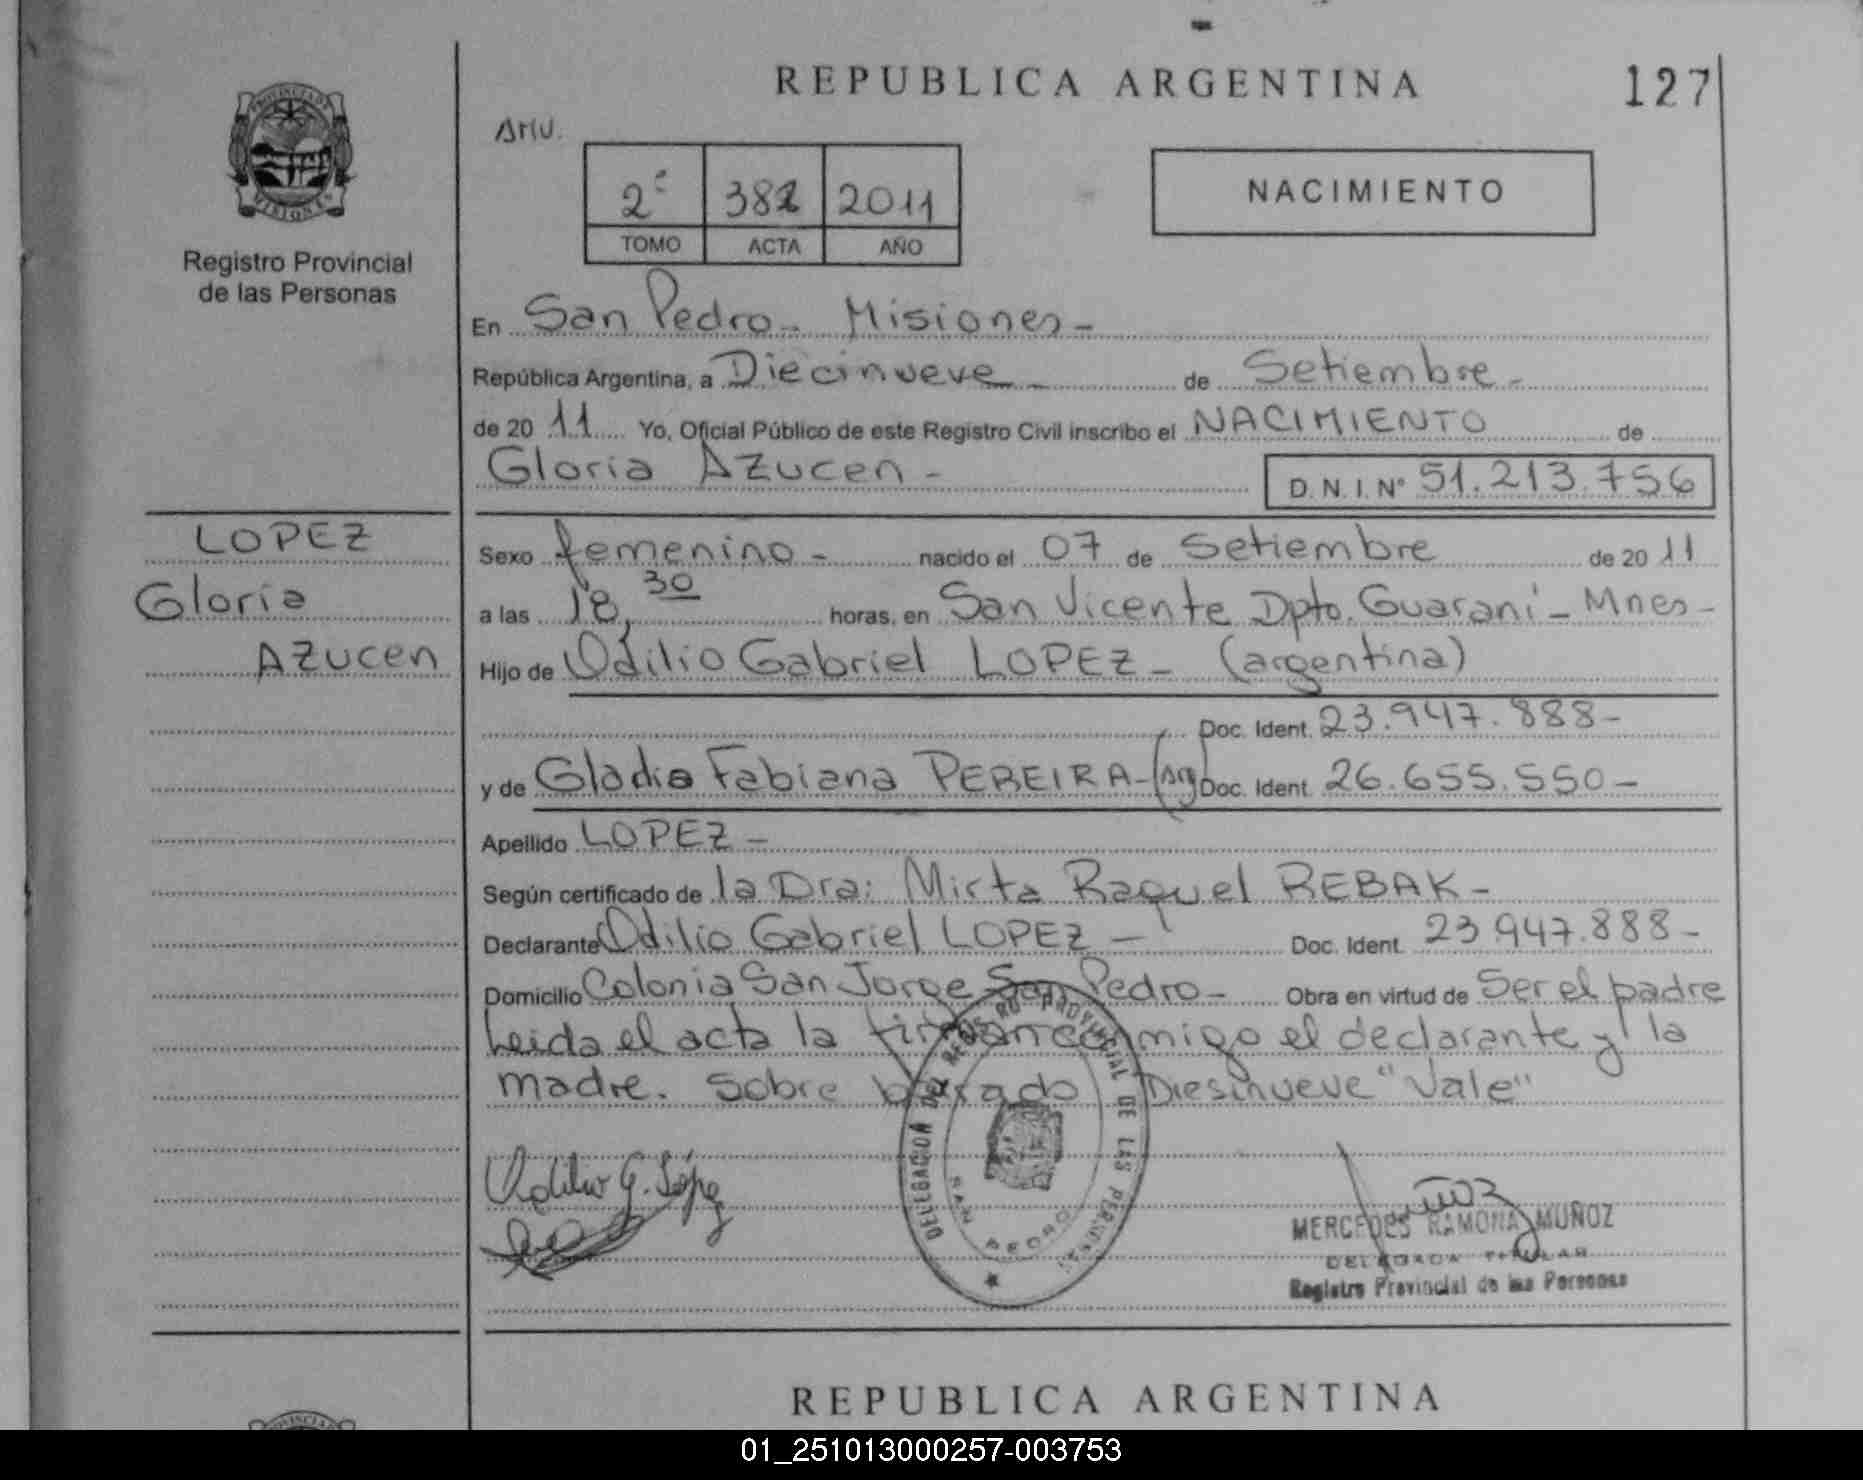 REPUBLICA ARGENTINA
127
AMU.
2º 382 2011
TOMO ACTA AÑO
NACIMIENTO
PROVINCIA DE
MISIONES
Registro Provincial
de las Personas
En San Pedro - Misiones -
República Argentina, a Diecinueve - de Setiembre -
de 20 11 Yo, Oficial Público de este Registro Civil inscribo el NACIMIENTO de
Gloria AZUCEN -
D. N. I. Nº 51.213.756
LOPEZ
Gloria
AZUCEN
Sexo femenino - nacido el 07 de Setiembre de 20 11
a las 18,30 horas, en San Vicente Dpto. Guaraní - Mnes -
Hijo de Odilio Gabriel LOPEZ - (argentina)
Doc. Ident. 23.947.888-
y de Gladis Fabiana PEREIRA - (Arg) Doc. Ident. 26.655.550-
Apellido LOPEZ -
Según certificado de la Dra: Mirta Raquel REBAK -
Declarante Odilio Gabriel LOPEZ - Doc. Ident. 23.947.888-
Domicilio Colonia San Jorge San Pedro - Obra en virtud de Ser el padre
Leida el acta la firman conmigo el declarante y la
madre. Sobre borrado Diesinueve "Vale"
Odilio G. López
DELEGACION DEL REGISTRO PROVINCIAL DE LAS PERSONAS
SAN PEDRO
Muñoz
MERCEDES RAMONA MUÑOZ
DELEGADA TITULAR
Registro Provincial de las Personas
REPUBLICA ARGENTINA
PROVINCIA
01_251013000257-003753